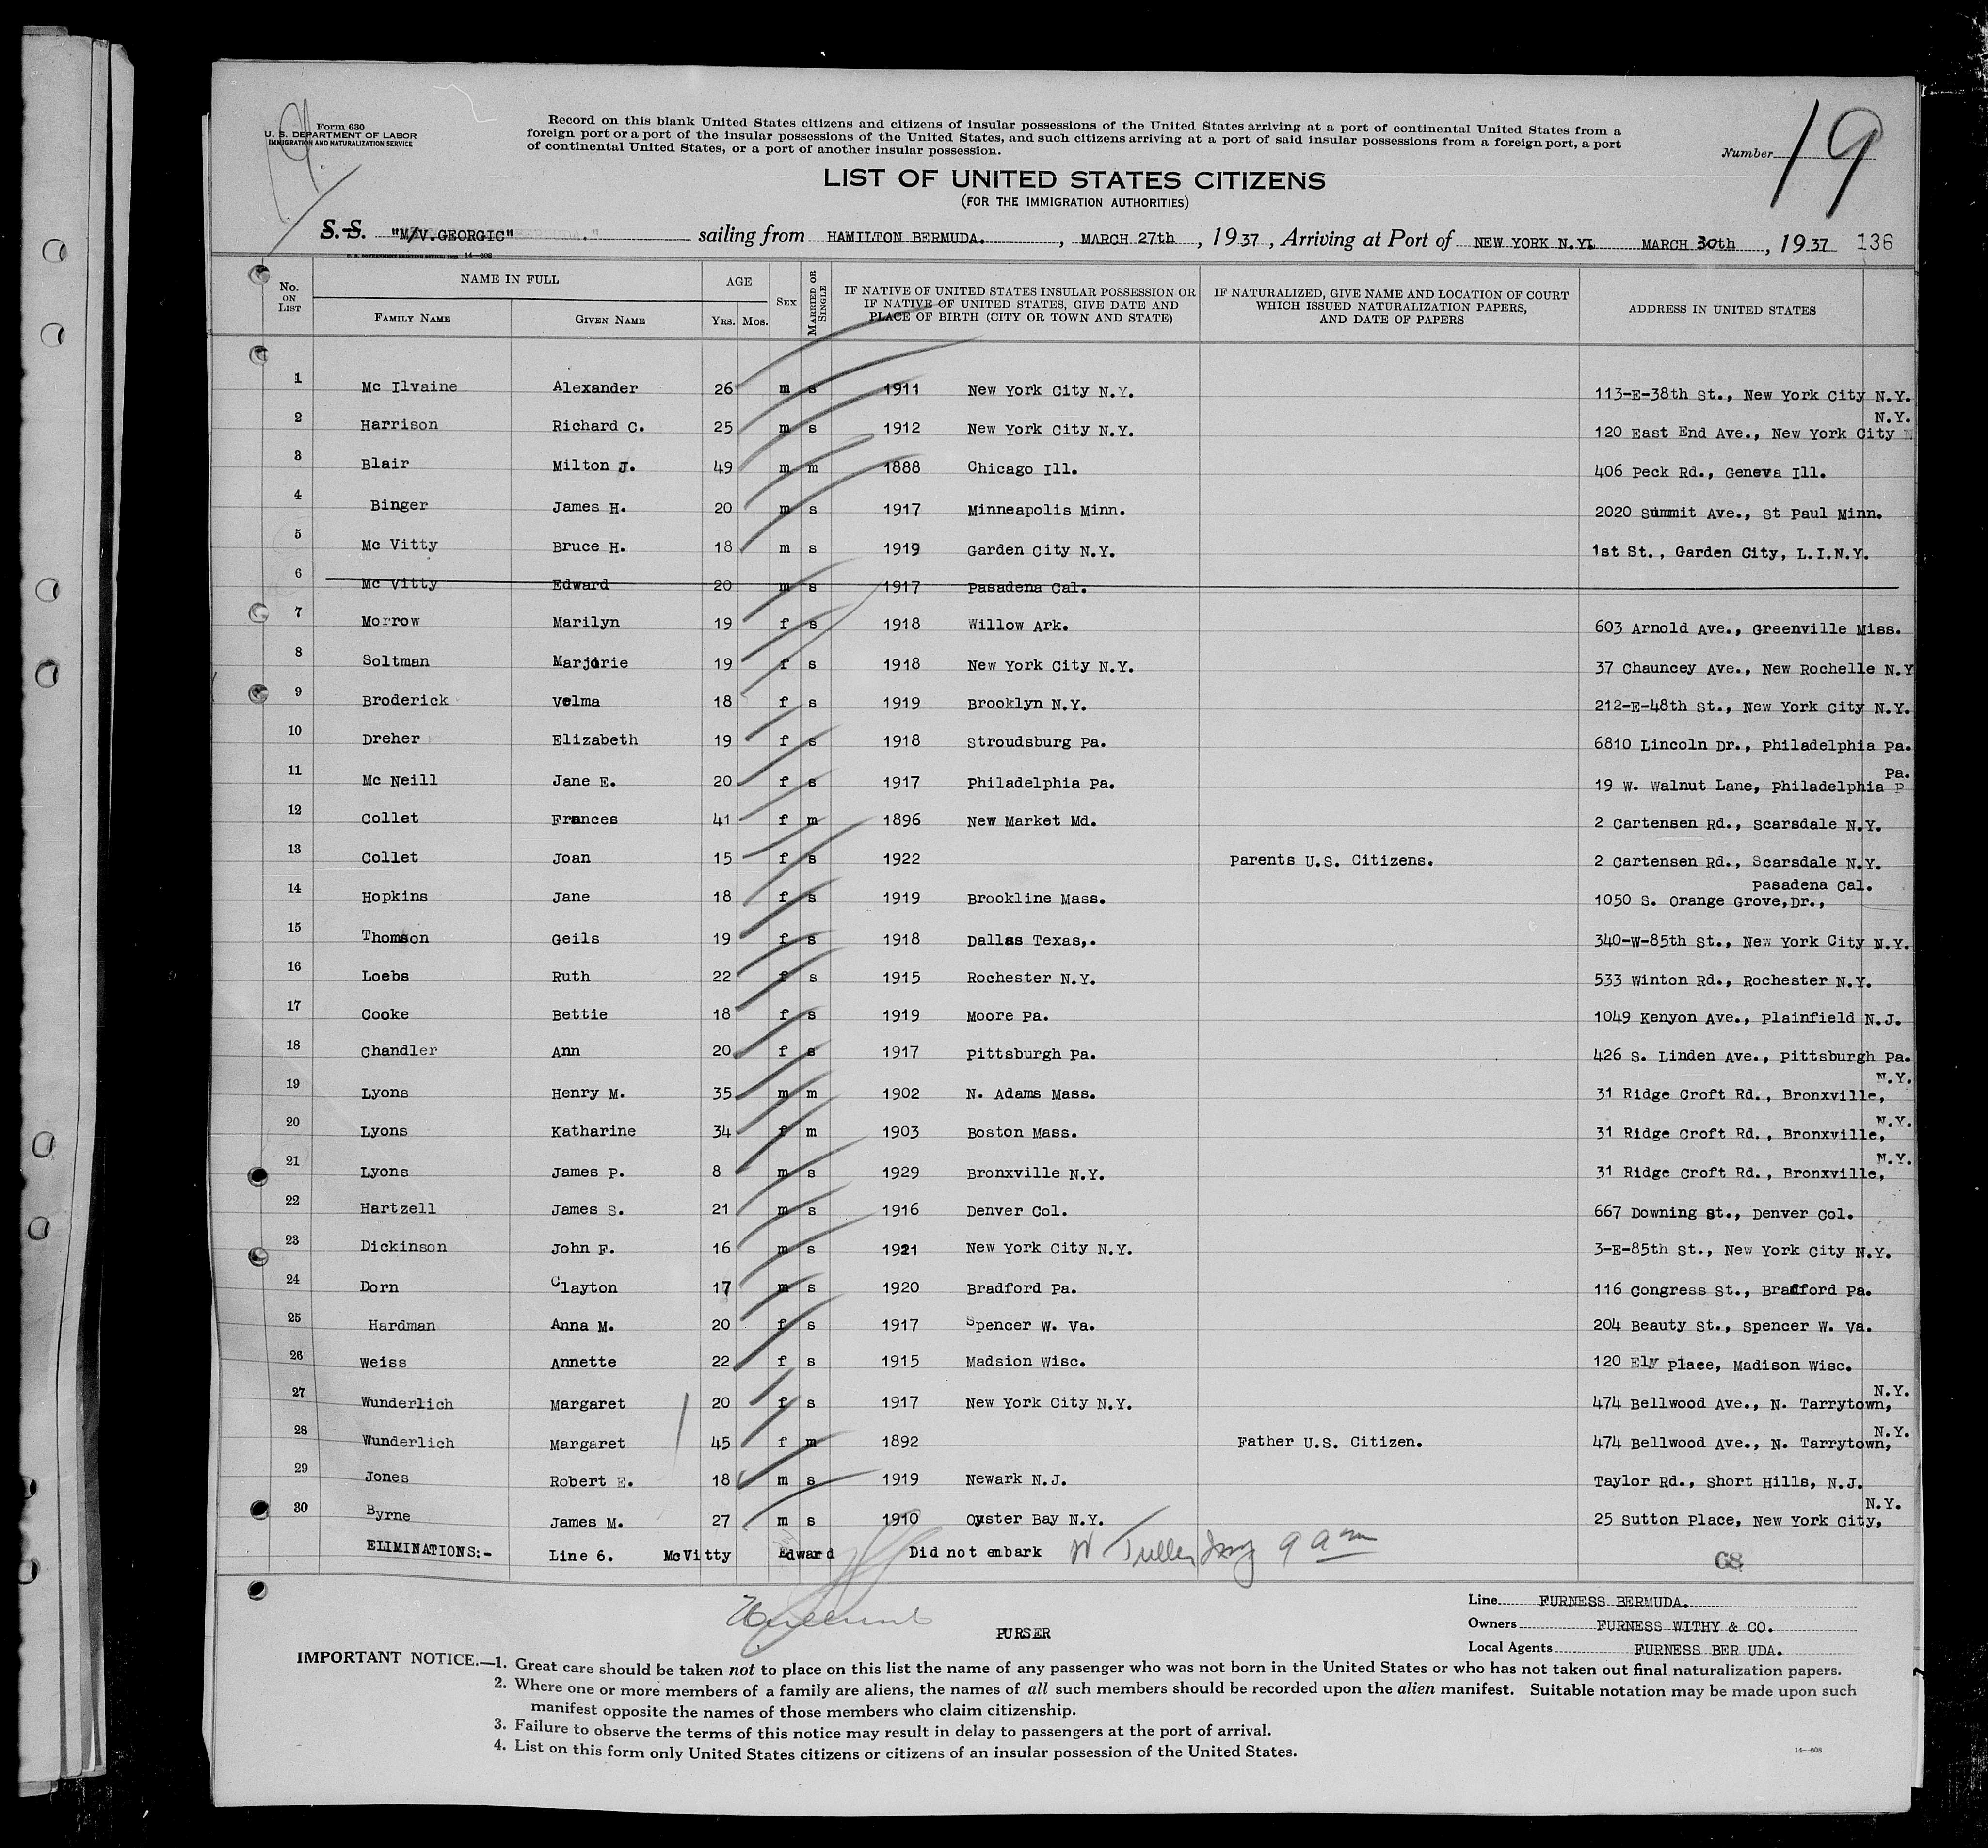 Form 630
U. S. DEPARTMENT OF LABOR
IMMIGRATION AND NATURALIZATION SERVICE
Record on this blank United States citizens and citizens of insular possessions of the United States arriving at a port of continental United States from a
foreign port or a port of the insular possessions of the United States, and such citizens arriving at a port of said insular possessions from a foreign port, a port
of continental United States, or a port of another insular possession.
Number 19
LIST OF UNITED STATES CITIZENS
(FOR THE IMMIGRATION AUTHORITIES)
S. S. "M/V.GEORGIC" sailing from HAMILTON BERMUDA. , MARCH 27th , 1937 , Arriving at Port of NEW YORK N.Y. MARCH 30th , 1937 136
No. ON LIST NAME IN FULL FAMILY NAME GIVEN NAME AGE YRS. MOS. SEX MARRIED OR SINGLE IF NATIVE OF UNITED STATES INSULAR POSSESSION OR IF NATIVE OF UNITED STATES, GIVE DATE AND PLACE OF BIRTH (CITY OR TOWN AND STATE) IF NATURALIZED, GIVE NAME AND LOCATION OF COURT WHICH ISSUED NATURALIZATION PAPERS, AND DATE OF PAPERS ADDRESS IN UNITED STATES
1 Mc Ilvaine Alexander 26 m s 1911 New York City N.Y. 113-E-38th St., New York City N.Y.
2 Harrison Richard C. 25 m s 1912 New York City N.Y. 120 East End Ave., New York City N.Y.
3 Blair Milton J. 49 m m 1888 Chicago Ill. 406 Peck Rd., Geneva Ill.
4 Binger James H. 20 m s 1917 Minneapolis Minn. 2020 Summit Ave., St Paul Minn.
5 Mc Vitty Bruce H. 18 m s 1919 Garden City N.Y. 1st St., Garden City, L.I.N.Y.
6 Mc Vitty Edward 20 m s 1917 Pasadena Cal.
7 Morrow Marilyn 19 f s 1918 Willow Ark. 603 Arnold Ave., Greenville Miss.
8 Soltman Marjorie 19 f s 1918 New York City N.Y. 37 Chauncey Ave., New Rochelle N.Y
9 Broderick Velma 18 f s 1919 Brooklyn N.Y. 212-E-48th St., New York City N.Y.
10 Dreher Elizabeth 19 f s 1918 Stroudsburg Pa. 6810 Lincoln Dr., Philadelphia Pa.
11 Mc Neill Jane E. 20 f s 1917 Philadelphia Pa. 19 W. Walnut Lane, Philadelphia Pa.
12 Collet Frances 41 f m 1896 New Market Md. 2 Cartensen Rd., Scarsdale N.Y.
13 Collet Joan 15 f s 1922 Parents U.S. Citizens. 2 Cartensen Rd., Scarsdale N.Y.
14 Hopkins Jane 18 f s 1919 Brookline Mass. 1050 S. Orange Grove,Dr., Pasadena Cal.
15 Thomson Geils 19 f s 1918 Dallas Texas,. 340-W-85th St., New York City N.Y.
16 Loebs Ruth 22 f s 1915 Rochester N.Y. 533 Winton Rd., Rochester N.Y.
17 Cooke Bettie 18 f s 1919 Moore Pa. 1049 Kenyon Ave., Plainfield N.J.
18 Chandler Ann 20 f s 1917 Pittsburgh Pa. 426 S. Linden Ave., Pittsburgh Pa.
19 Lyons Henry M. 35 m m 1902 N. Adams Mass. 31 Ridge Croft Rd., Bronxville, N.Y.
20 Lyons Katharine 34 f m 1903 Boston Mass. 31 Ridge Croft Rd., Bronxville, N.Y.
21 Lyons James P. 8 m s 1929 Bronxville N.Y. 31 Ridge Croft Rd., Bronxville, N.Y.
22 Hartzell James S. 21 m s 1916 Denver Col. 667 Downing St., Denver Col.
23 Dickinson John F. 16 m s 1921 New York City N.Y. 3-E-85th St., New York City N.Y.
24 Dorn Clayton 17 m s 1920 Bradford Pa. 116 Congress St., Bradford Pa.
25 Hardman Anna M. 20 f s 1917 Spencer W. Va. 204 Beauty St., Spencer W. Va.
26 Weiss Annette 22 f s 1915 Madsion Wisc. 120 Ely Place, Madison Wisc.
27 Wunderlich Margaret 20 f s 1917 New York City N.Y. 474 Bellwood Ave., N. Tarrytown, N.Y.
28 Wunderlich Margaret 45 f m 1892 Father U.S. Citizen. 474 Bellwood Ave., N. Tarrytown, N.Y.
29 Jones Robert E. 18 m s 1919 Newark N.J. Taylor Rd., Short Hills, N.J.
30 Byrne James M. 27 m s 1910 Oyster Bay N.Y. 25 Sutton Place, New York City, N.Y.
ELIMINATIONS:- Line 6. McVitty Edward Did not embark 9 am 68
PURSER
Line FURNESS BERMUDA.
Owners FURNESS WITHY & CO.
Local Agents FURNESS BER UDA.
IMPORTANT NOTICE.—1. Great care should be taken not to place on this list the name of any passenger who was not born in the United States or who has not taken out final naturalization papers.
2. Where one or more members of a family are aliens, the names of all such members should be recorded upon the alien manifest. Suitable notation may be made upon such
manifest opposite the names of those members who claim citizenship.
3. Failure to observe the terms of this notice may result in delay to passengers at the port of arrival.
4. List on this form only United States citizens or citizens of an insular possession of the United States.
14—608